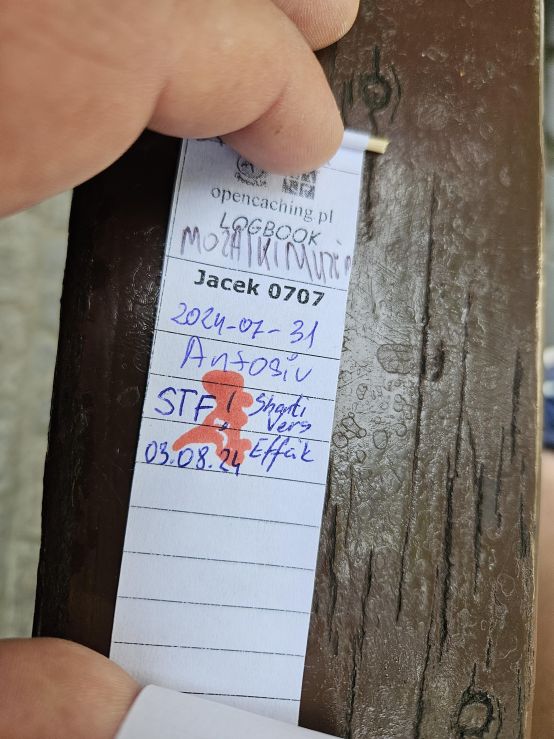 opencaching.pl
LOGBOOK
Jacek 0707
2024-07-31
Antosiu
STF! Shanti
Vers
03.08.24 Effik